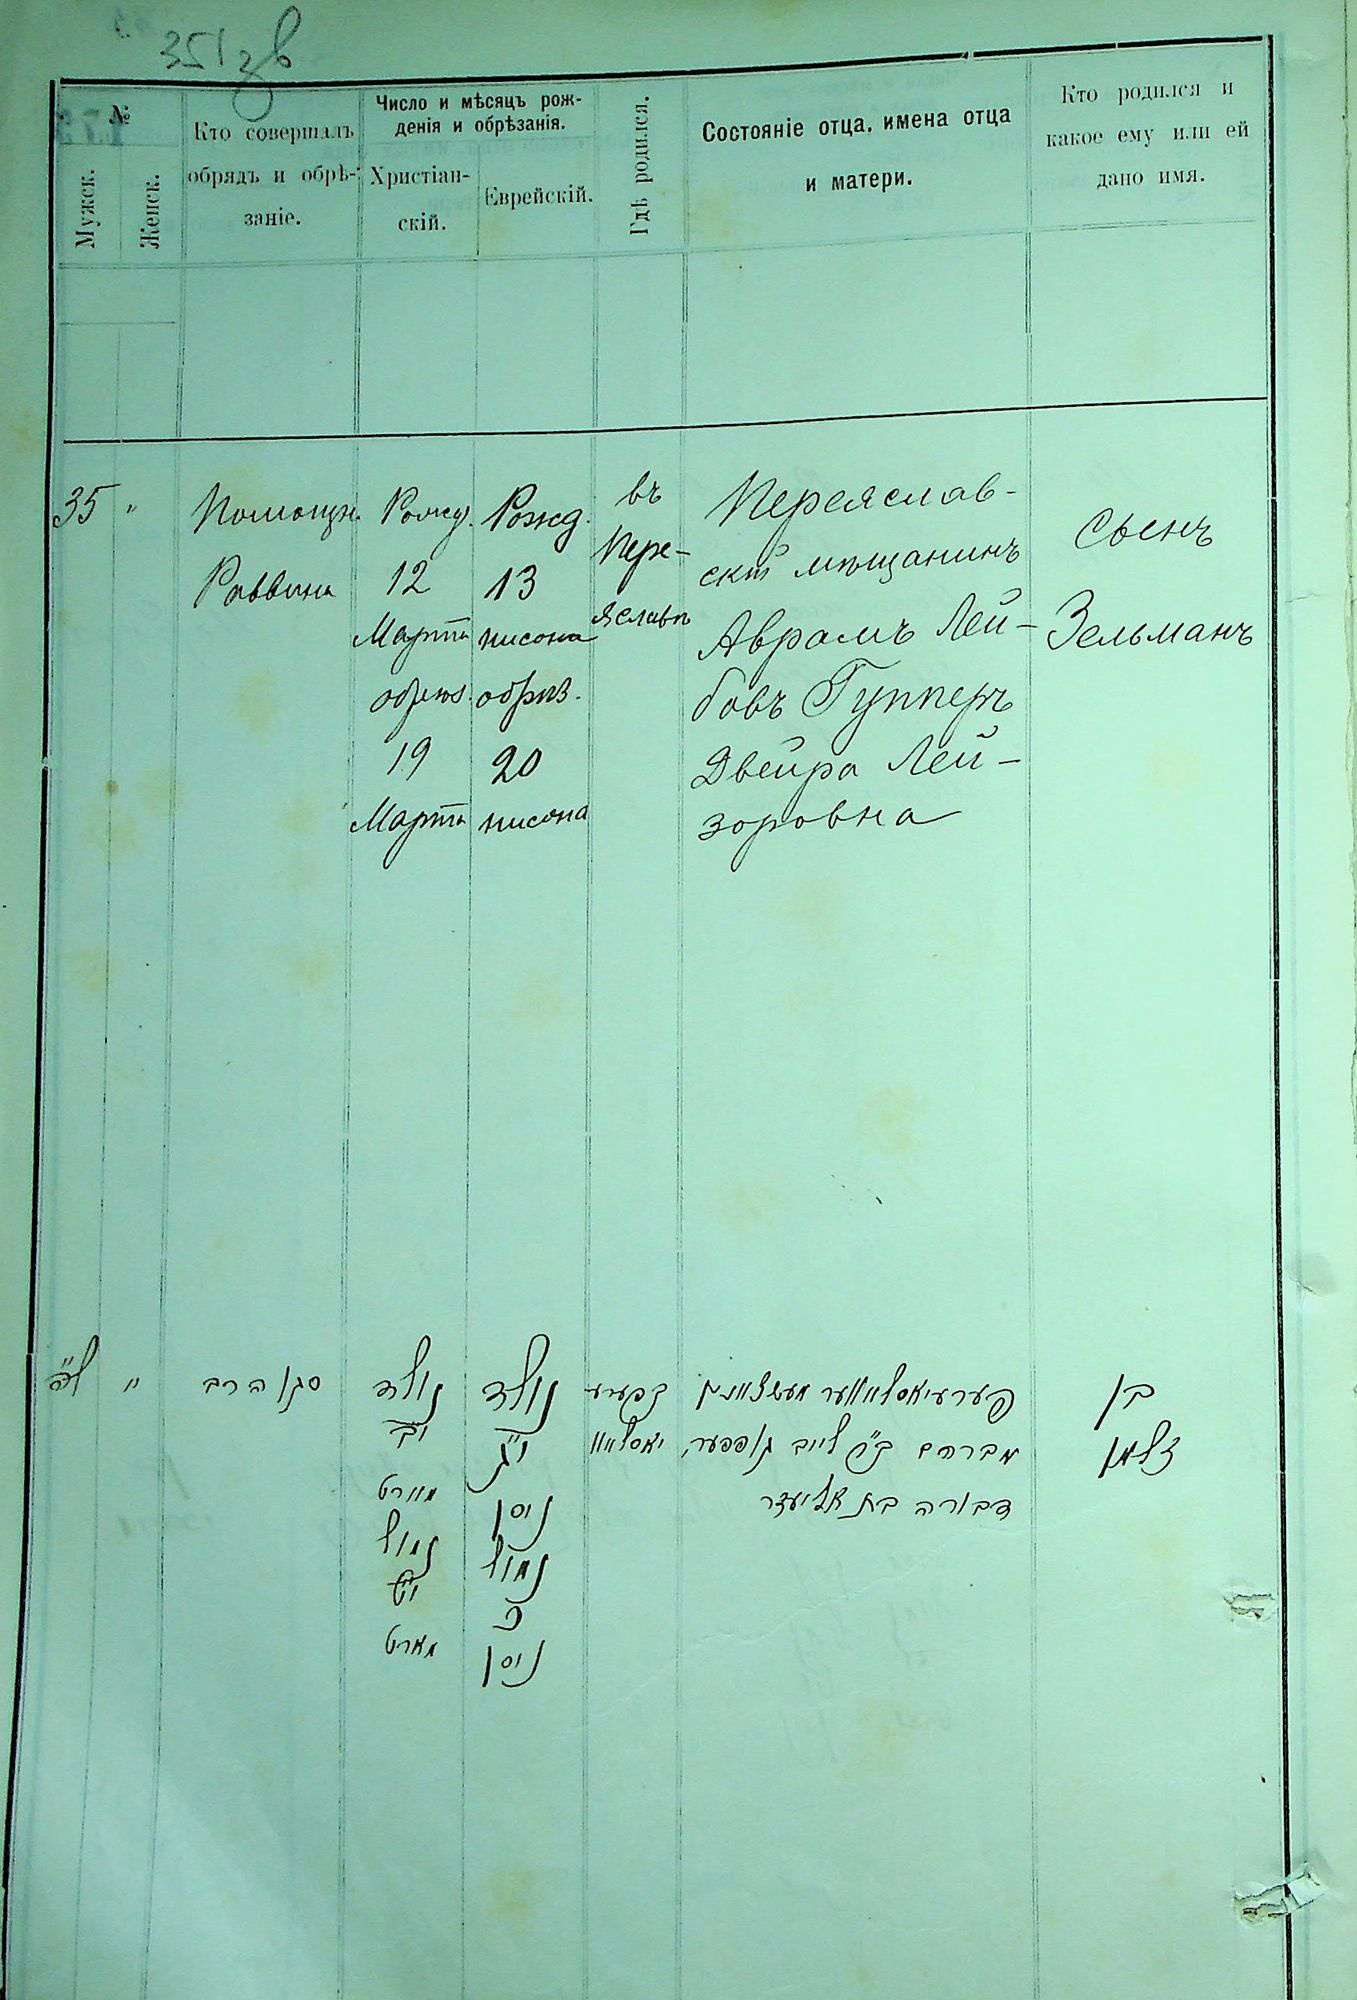 351 зв
№
Мужск.
Женск.
Кто совершалъ
обрядъ и обрѣ-
заніе.
Число и мѣсяцъ рож-
денія и обрѣзанія.
Христіан-
скій.
Еврейскій.
Гдѣ родился.
Состояніе отца, имена отца
и матери.
Кто родился и
какое ему или ей
дано имя.
35 "
Помощн.
Раввина
Рожд.
12
Марта
обрѣз.
19
Марта
Рожд.
13
нисона
обрѣз.
20
нисона
въ
Пере-
яславѣ
Переяслав-
скій мѣщанинъ
Аврамъ Лей-
бовъ Гупперъ
Двейра Лей-
зоровна
Сынъ
Зельманъ
ל״ה "
סגן הרב
נולד
י״ב
מארט
נמול
י״ט
מארט
נולד
י״ג
ניסן
נמול
כ
ניסן
בפערע
יאסלאוו
פערעיאסלאווער מעשצאנין
אברהם ב״ר לייב גופפער,
דבורה בת אליעזר
בן
זלמן